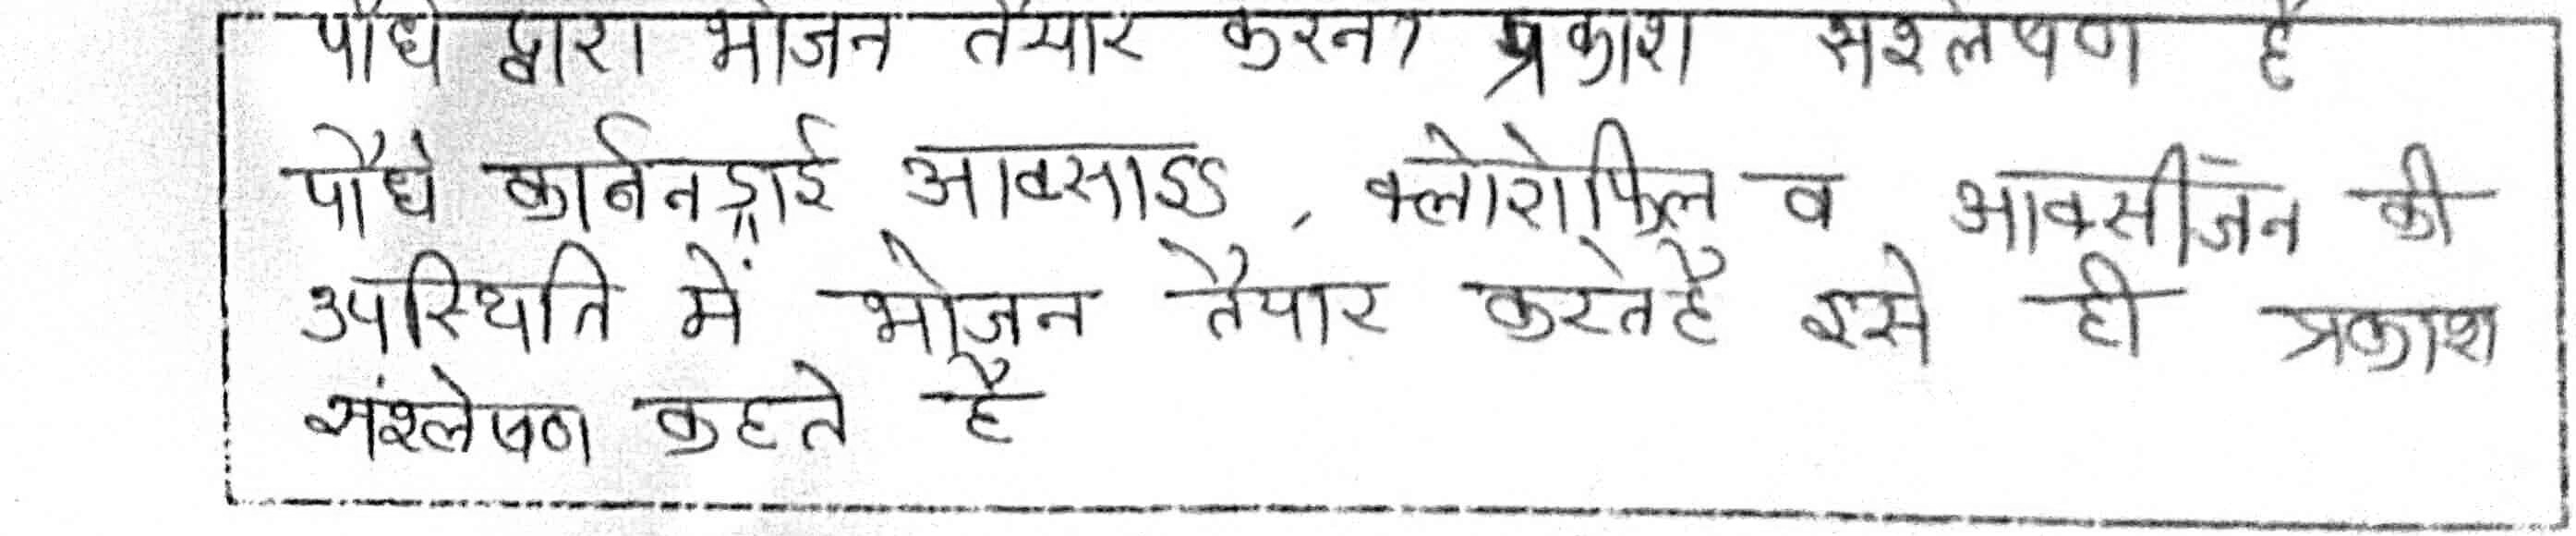 पौधे द्वारा भोजन तैयार करना प्रकाश संश्लेषण है
पौधे कार्बनड्राई आक्साइड, क्लोरोफिल व आक्सीजन की
उपस्थिति में भोजन तैयार करते है इसे ही प्रकाश
संश्लेषण कहते है